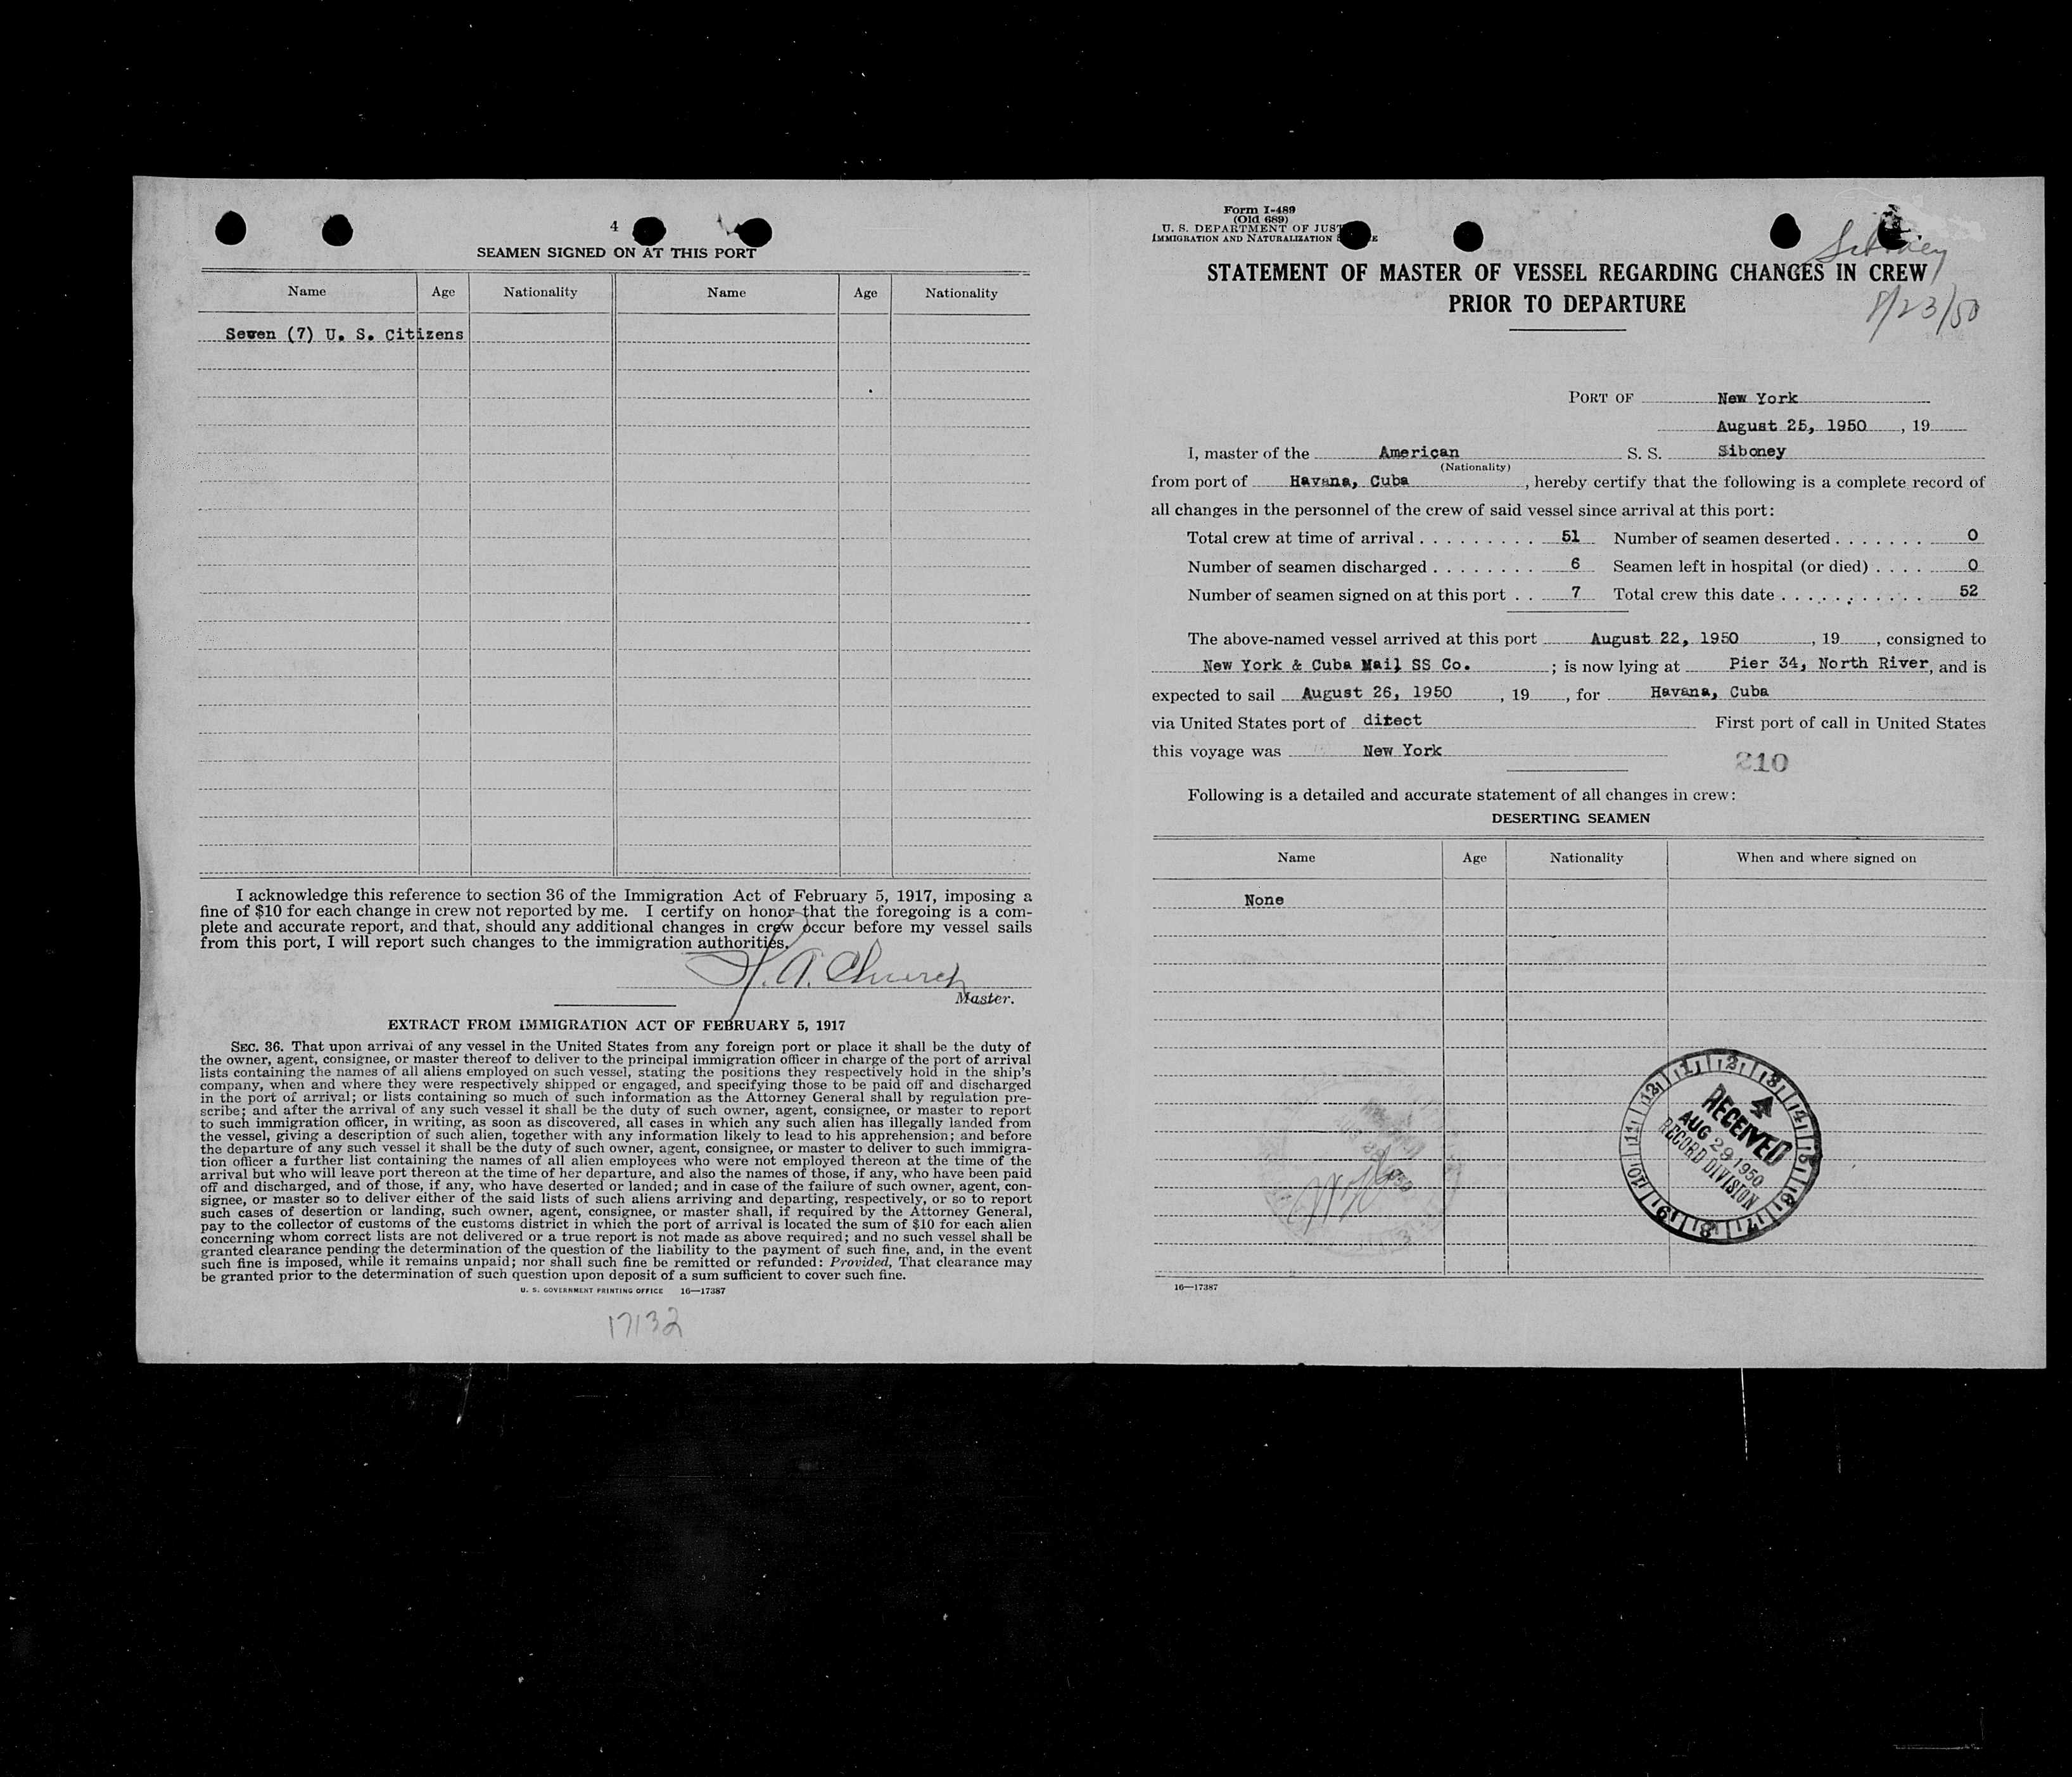 4
SEAMEN SIGNED ON AT THIS PORT
Name Age Nationality Name Age Nationality
Seven (7) U. S. Citizens
I acknowledge this reference to section 36 of the Immigration Act of February 5, 1917, imposing a
fine of $10 for each change in crew not reported by me. I certify on honor that the foregoing is a com-
plete and accurate report, and that, should any additional changes in crew occur before my vessel sails
from this port, I will report such changes to the immigration authorities.
A. Church
Master.
EXTRACT FROM IMMIGRATION ACT OF FEBRUARY 5, 1917
SEC. 36. That upon arrival of any vessel in the United States from any foreign port or place it shall be the duty of
the owner, agent, consignee, or master thereof to deliver to the principal immigration officer in charge of the port of arrival
lists containing the names of all aliens employed on such vessel, stating the positions they respectively hold in the ship's
company, when and where they were respectively shipped or engaged, and specifying those to be paid off and discharged
in the port of arrival; or lists containing so much of such information as the Attorney General shall by regulation pre-
scribe; and after the arrival of any such vessel it shall be the duty of such owner, agent, consignee, or master to report
to such immigration officer, in writing, as soon as discovered, all cases in which any such alien has illegally landed from
the vessel, giving a description of such alien, together with any information likely to lead to his apprehension; and before
the departure of any such vessel it shall be the duty of such owner, agent, consignee, or master to deliver to such immigra-
tion officer a further list containing the names of all alien employees who were not employed thereon at the time of the
arrival but who will leave port thereon at the time of her departure, and also the names of those, if any, who have been paid
off and discharged, and of those, if any, who have deserted or landed; and in case of the failure of such owner, agent, con-
signee, or master so to deliver either of the said lists of such aliens arriving and departing, respectively, or so to report
such cases of desertion or landing, such owner, agent, consignee, or master shall, if required by the Attorney General,
pay to the collector of customs of the customs district in which the port of arrival is located the sum of $10 for each alien
concerning whom correct lists are not delivered or a true report is not made as above required; and no such vessel shall be
granted clearance pending the determination of the question of the liability to the payment of such fine, and, in the event
such fine is imposed, while it remains unpaid; nor shall such fine be remitted or refunded: Provided, That clearance may
be granted prior to the determination of such question upon deposit of a sum sufficient to cover such fine.
U. S. GOVERNMENT PRINTING OFFICE 16—17387
17132
Form I-489
(Old 689)
U. S. DEPARTMENT OF JUST
IMMIGRATION AND NATURALIZATION
Siboney
STATEMENT OF MASTER OF VESSEL REGARDING CHANGES IN CREW
PRIOR TO DEPARTURE
8/23/50
PORT OF New York
August 25, 1950, 19
I, master of the American S. S. Siboney
(Nationality)
from port of Havana, Cuba, hereby certify that the following is a complete record of
all changes in the personnel of the crew of said vessel since arrival at this port:
Total crew at time of arrival . . . . . . . . . 51 Number of seamen deserted . . . . . . . 0
Number of seamen discharged . . . . . . . . 6 Seamen left in hospital (or died) . . . . 0
Number of seamen signed on at this port . . 7 Total crew this date . . . . . . . . . . . 52
The above-named vessel arrived at this port August 22, 1950, 19, consigned to
New York & Cuba Mail SS Co. ; is now lying at Pier 34, North River, and is
expected to sail August 26, 1950, 19, for Havana, Cuba
via United States port of direct First port of call in United States
this voyage was New York
210
Following is a detailed and accurate statement of all changes in crew:
DESERTING SEAMEN
Name Age Nationality When and where signed on
None
12 1 2 3 4 5 6 7 8 9 10 11
4
RECEIVED
AUG 29 1950
RECORD DIVISION
16—17387